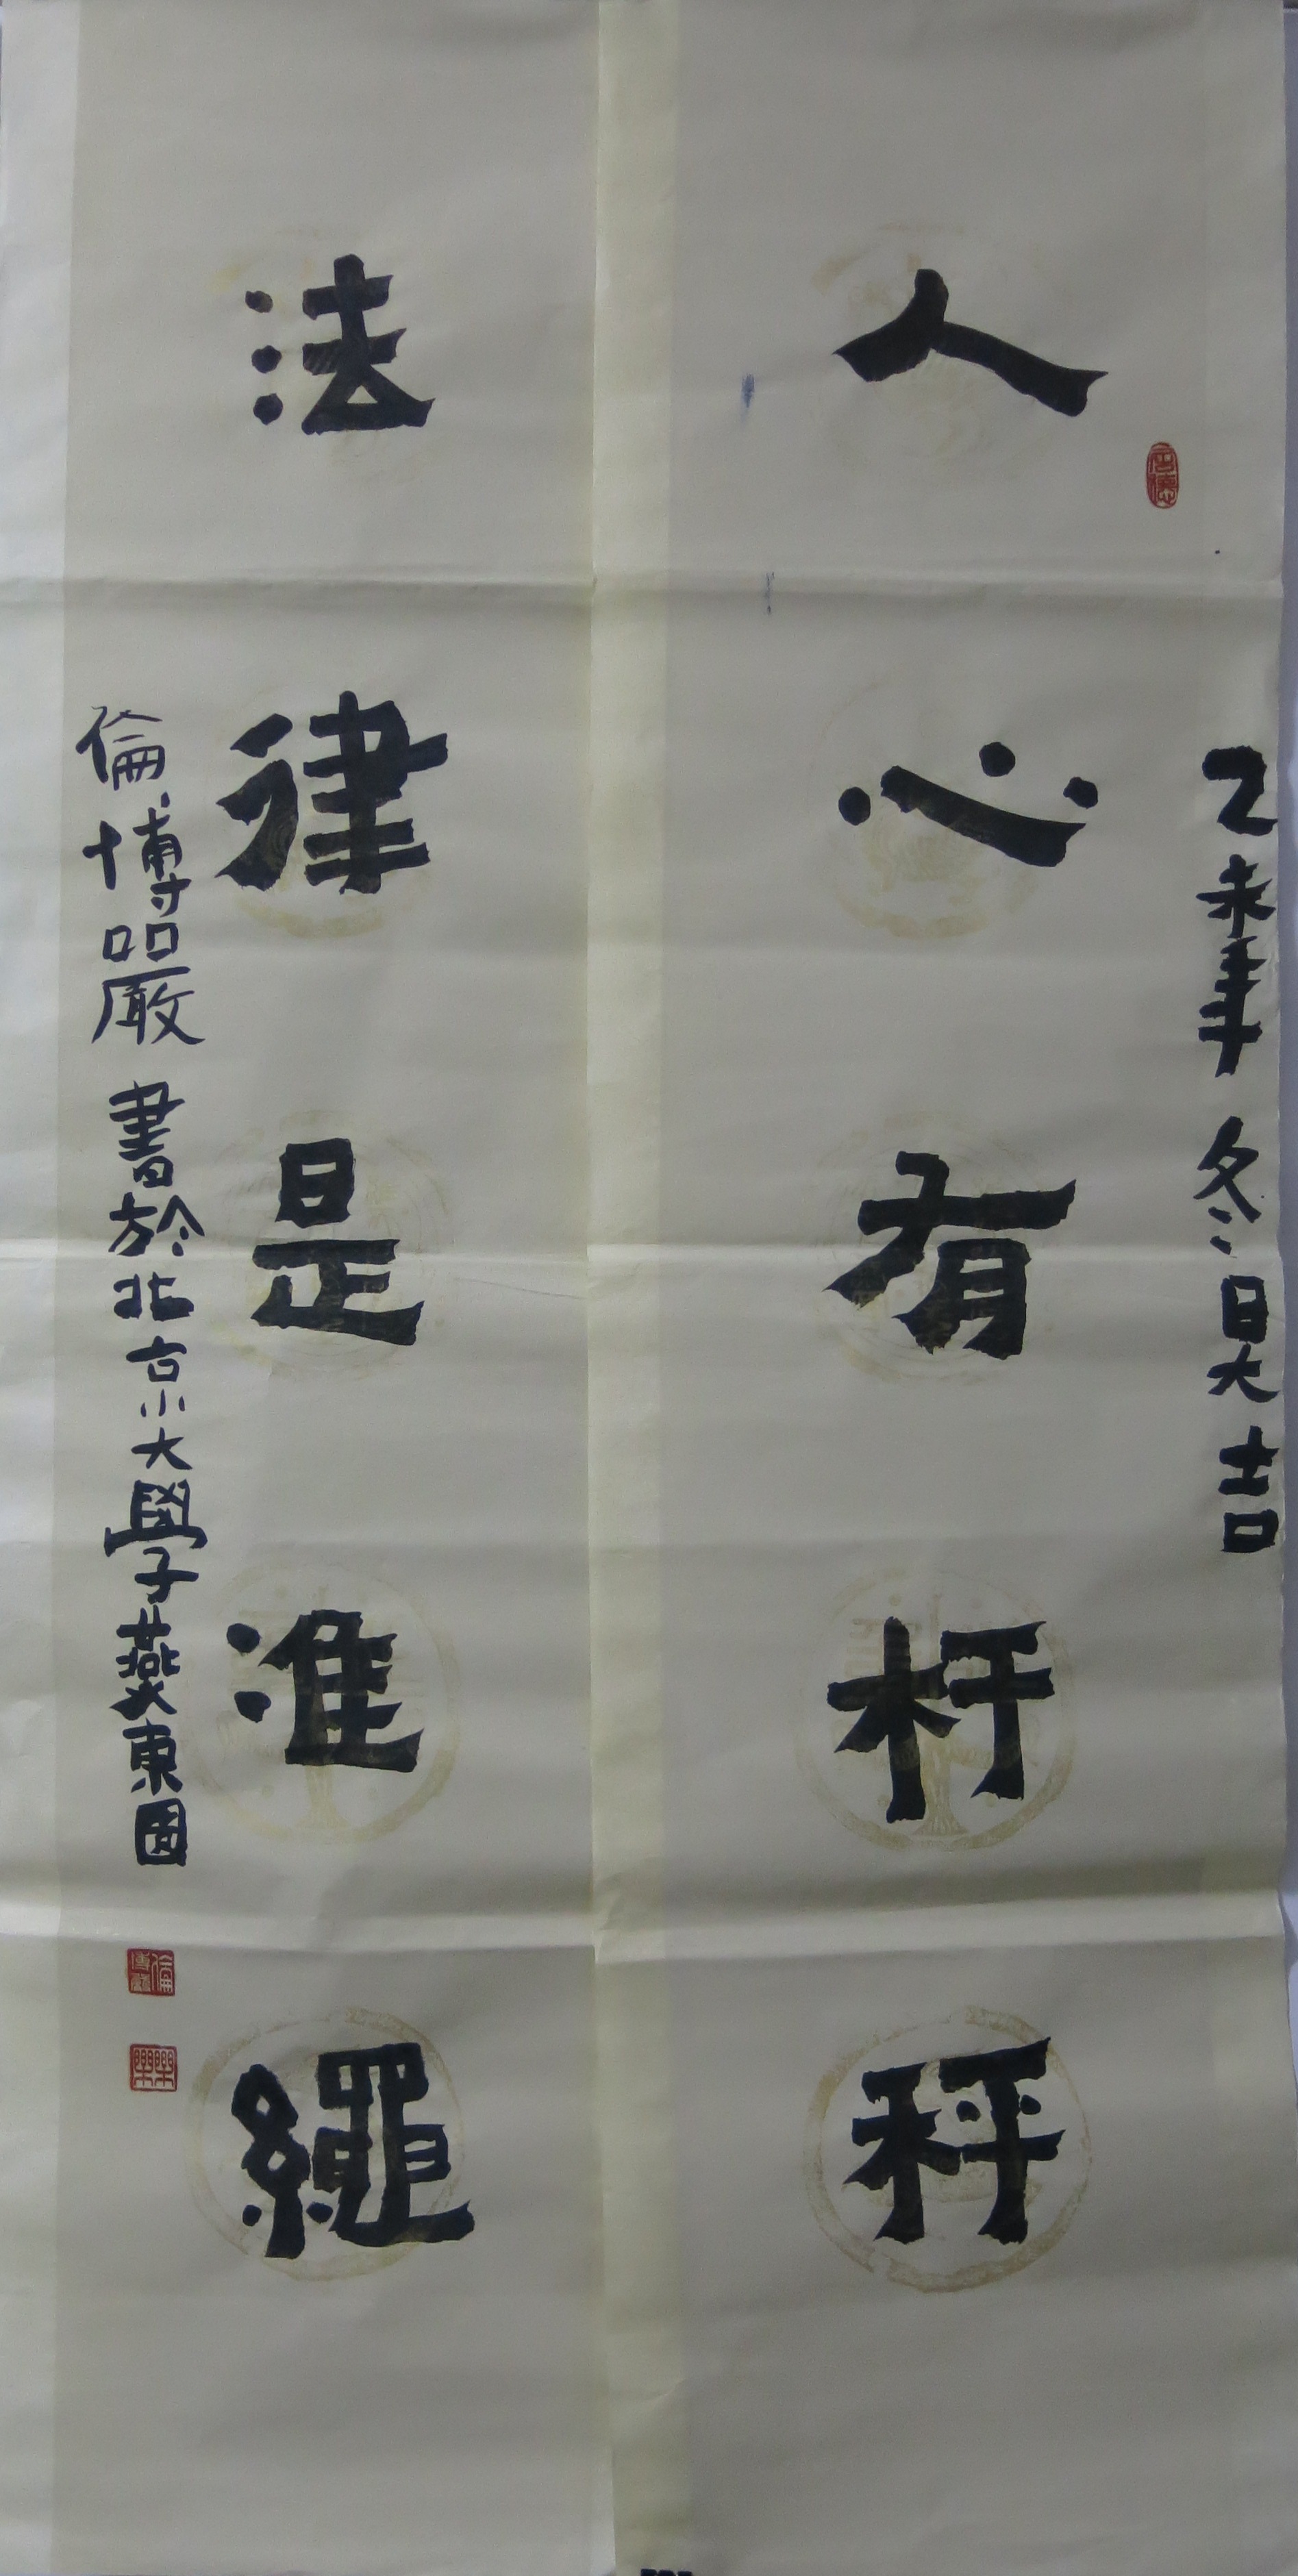 乙未年冬日大吉
人心有杆秤
法律是准繩
倫博嚴書於北京大學燕東園